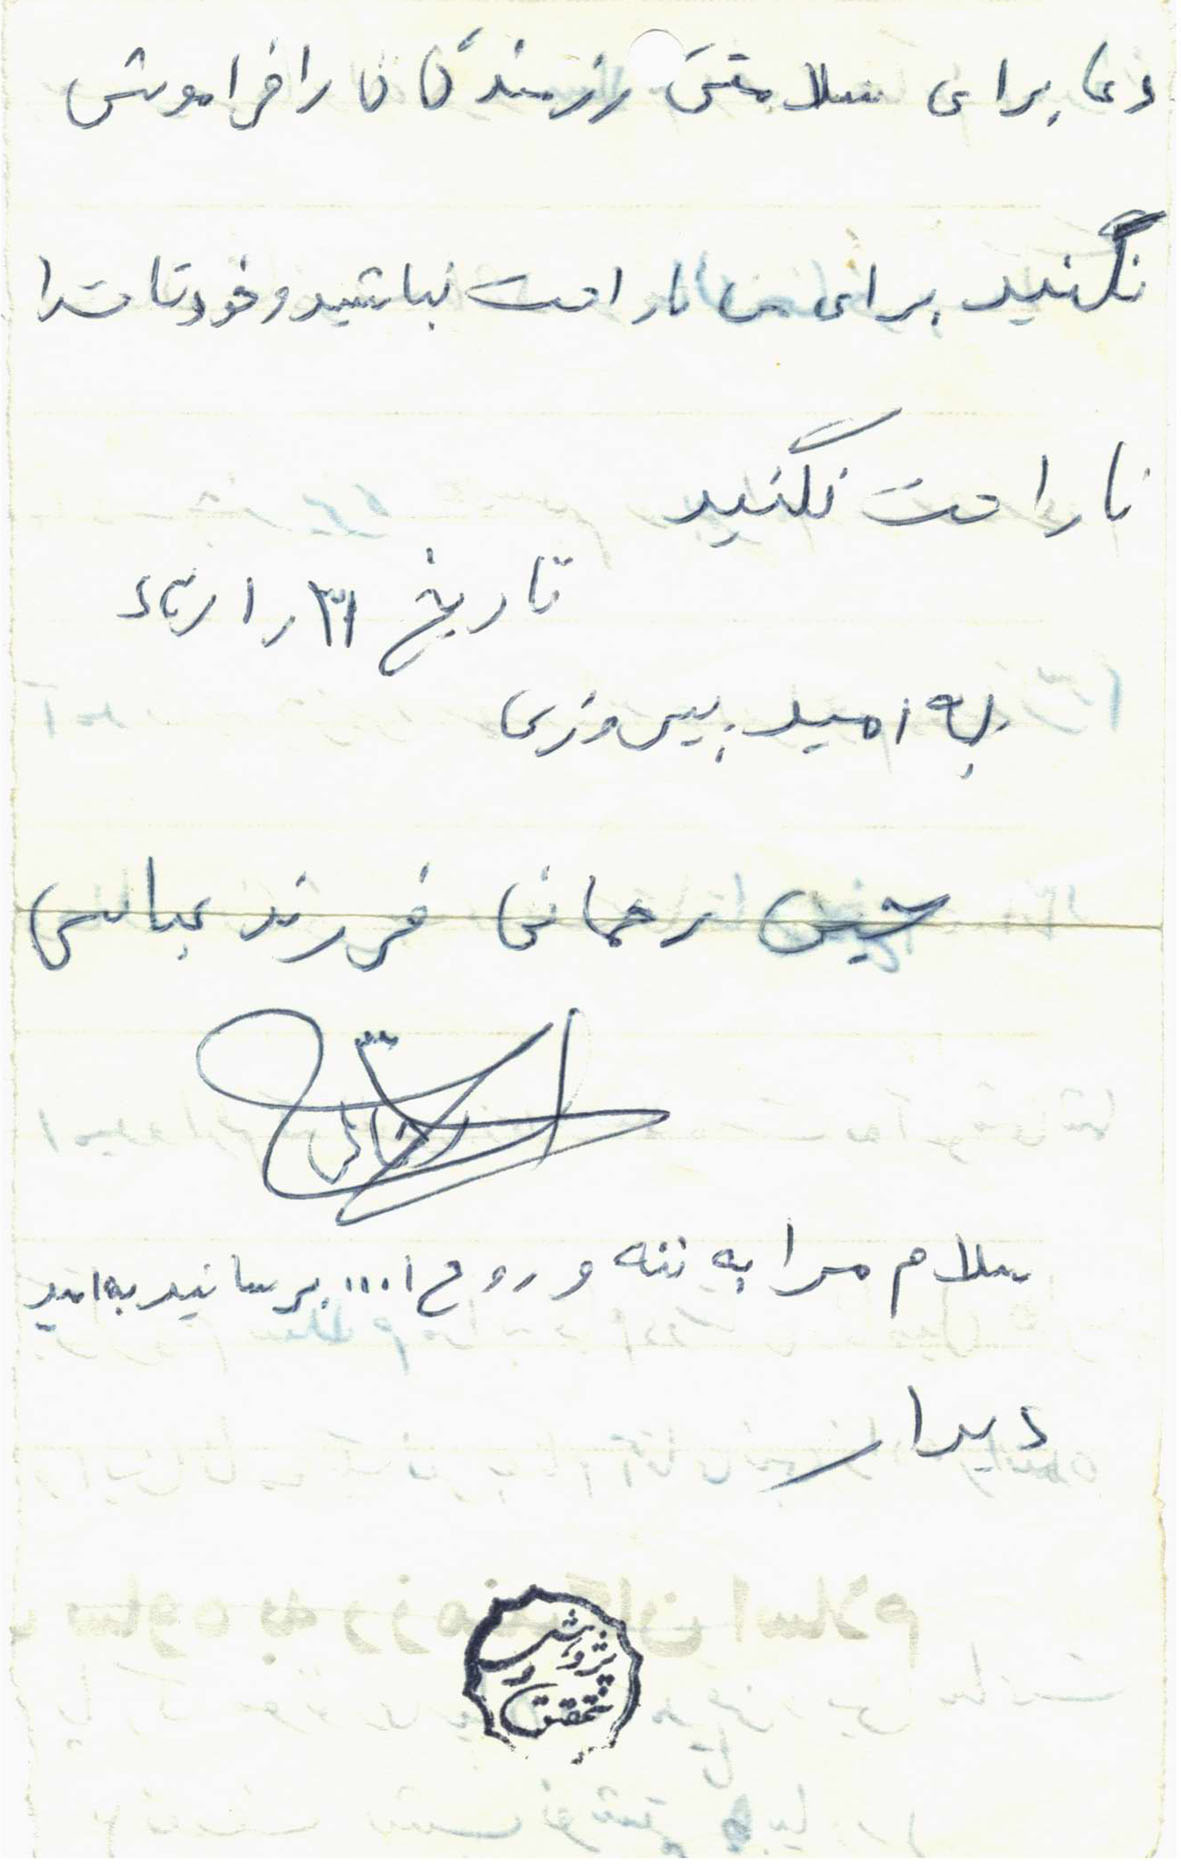 دعا برای سلامتی رزمندگان را فراموش
نگنید برای من ناراحت نباشید و خودتان را
ناراحت نکنید
تاریخ ۳۱ ر۱ر
به امید پیروزی
حسین رحمانی فرزند عباس
سلام مرا به ننه و روح ا... برسانید به امید
دیدار
پژوهش
و
تحقیق